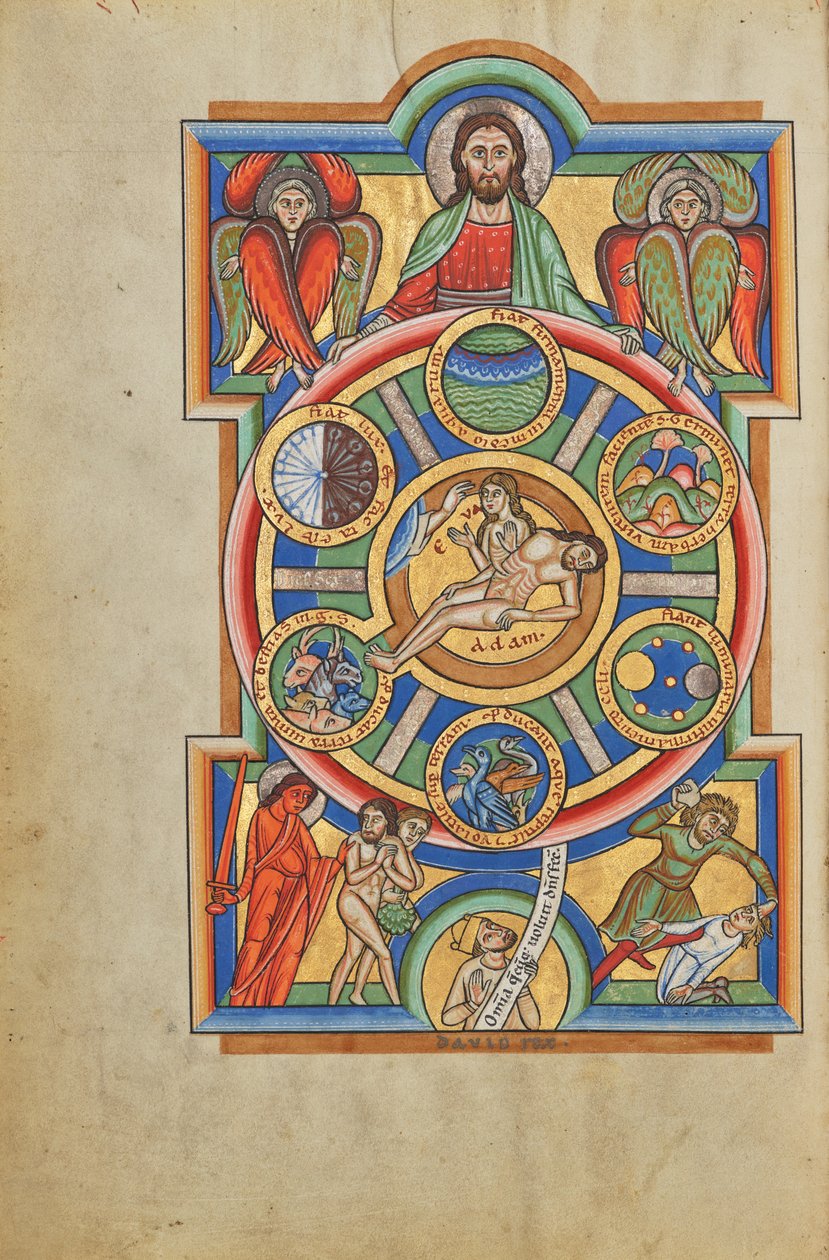 fiat firmamentū in medio aquarum
fiat lux & facta est lux
Germinet terra herbam uirentem faciente s.
EVA
adam.
ꝓducat terra iumta et bestias in. g. s.
fiant luminaria in firmamento celi
ꝓducant aque reptile ⁊ uolatile sup terram
Omīa q̄cūq; uoluit dn̄s fec̄.
DAVID rex.